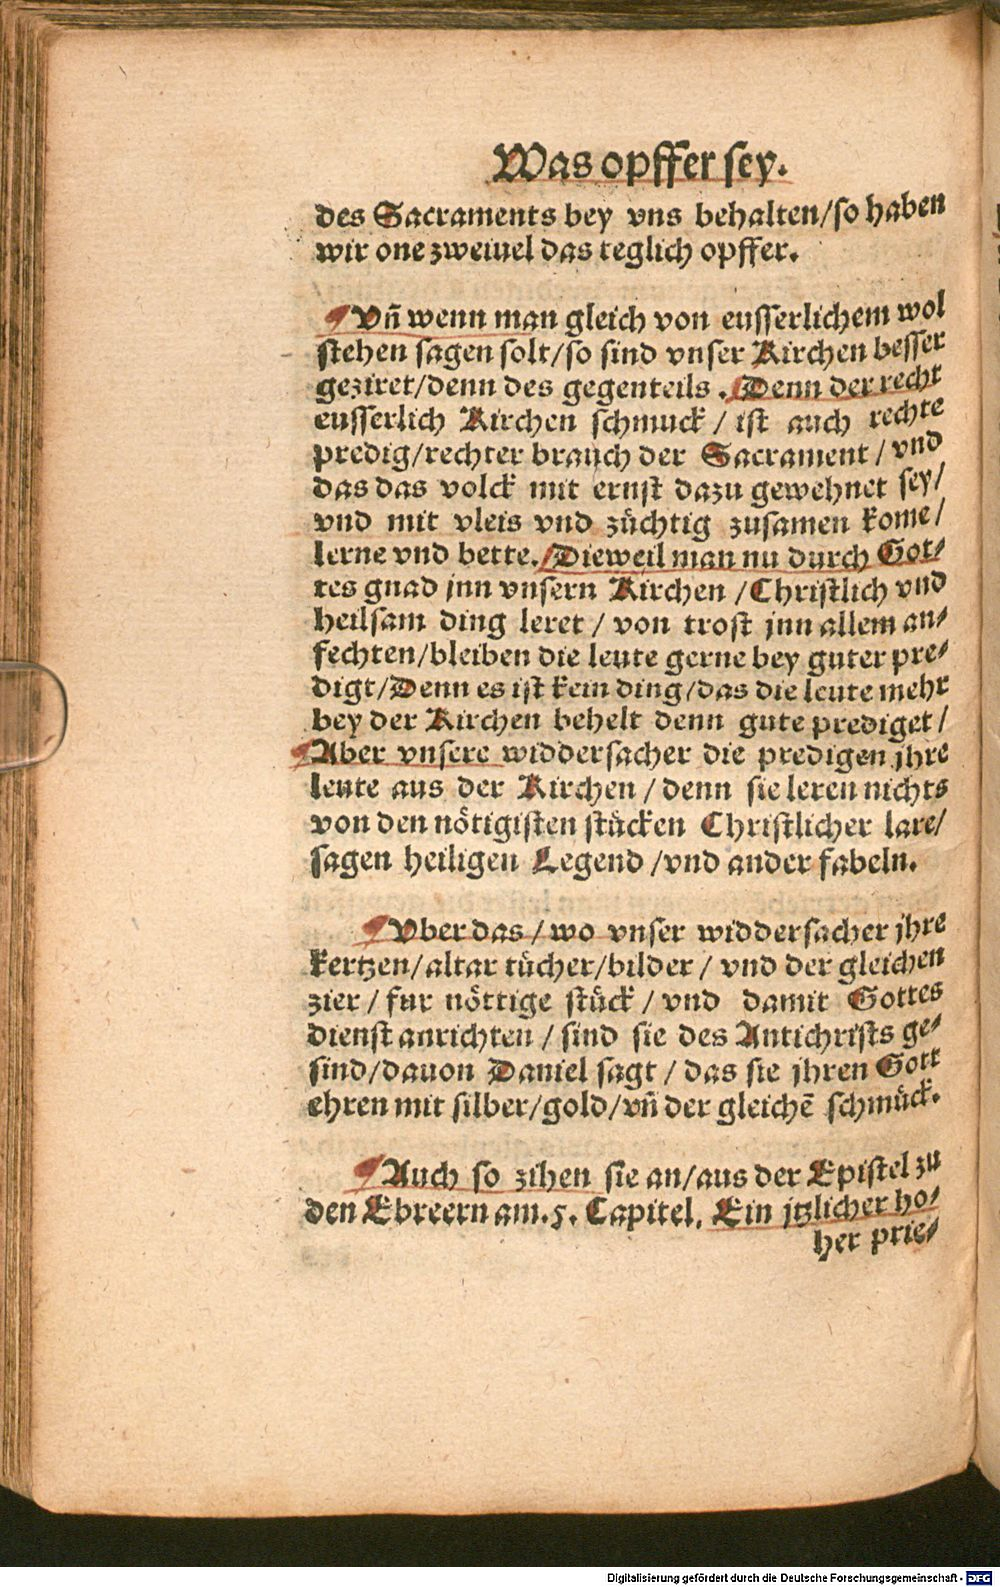 Was opffer sey.
des Sacraments bey vns behalten/so haben
wir one zweiuel das teglich opffer.
Vñ wenn man gleich von eusserlichem wol
stehen sagen solt/so sind vnser Kirchen besser
geziret/denn des gegenteils. Denn der recht
eusserlich Kirchen schmuck / ist auch rechte
predig/rechter brauch der Sacrament / vnd
das das volck mit ernst dazu gewehnet sey/
vnd mit vleis vnd züchtig zusamen kome/
lerne vnd bette. Dieweil man nu durch Got⸗
tes gnad jnn vnsern Kirchen /Christlich vnd
heilsam ding leret / von trost jnn allem an⸗
fechten/bleiben die leute gerne bey guter pre⸗
digt/Denn es ist kein ding/das die leute mehr
bey der Kirchen behelt denn gute prediget/
Aber vnsere widdersacher die predigen jhre
leute aus der Kirchen / denn sie leren nichts
von den nötigisten stücken Christlicher lare/
sagen heiligen Legend /vnd ander fabeln.
Vber das / wo vnser widdersacher jhre
kertzen/altar tücher/bilder / vnd der gleichen
zier / fur nöttige stück / vnd damit Gottes
dienst anrichten / sind sie des Antichrists ge⸗
sind/dauon Daniel sagt / das sie jhren Gott
ehren mit silber/gold/vñ der gleichē schmück.
Auch so zihen sie an/aus der Epistel zu
den Ebreern am.5. Capitel. Ein jtzlicher ho⸗
her prie⸗
Digitalisierung gefördert durch die Deutsche Forschungsgemeinschaft - DFG